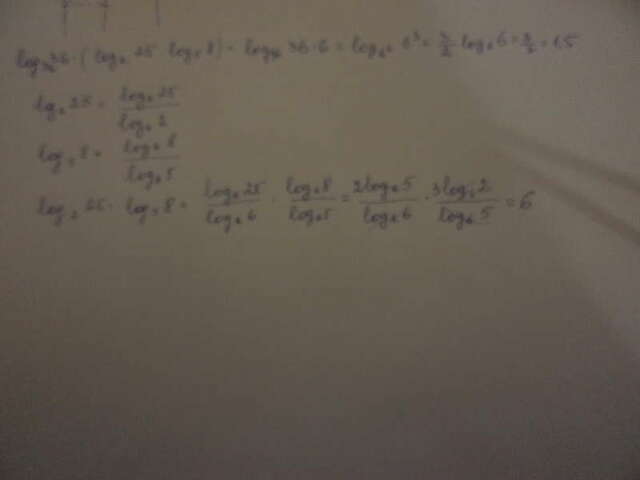 log₃₆ 36 · (log₂ 25 · log₅ 8) = log₃₆ 36 · 6 = log₆² 6³ = 3/2 log₆ 6 = 3/2 = 1,5
log₂ 25 = log₆ 25 / log₆ 2
log₅ 8 = log₆ 8 / log₆ 5
log₂ 25 · log₅ 8 = log₆ 25 / log₆ 6 · log₆ 8 / log₆ 5 = 2 log₆ 5 / log₆ 6 · 3 log₆ 2 / log₆ 5 = 6